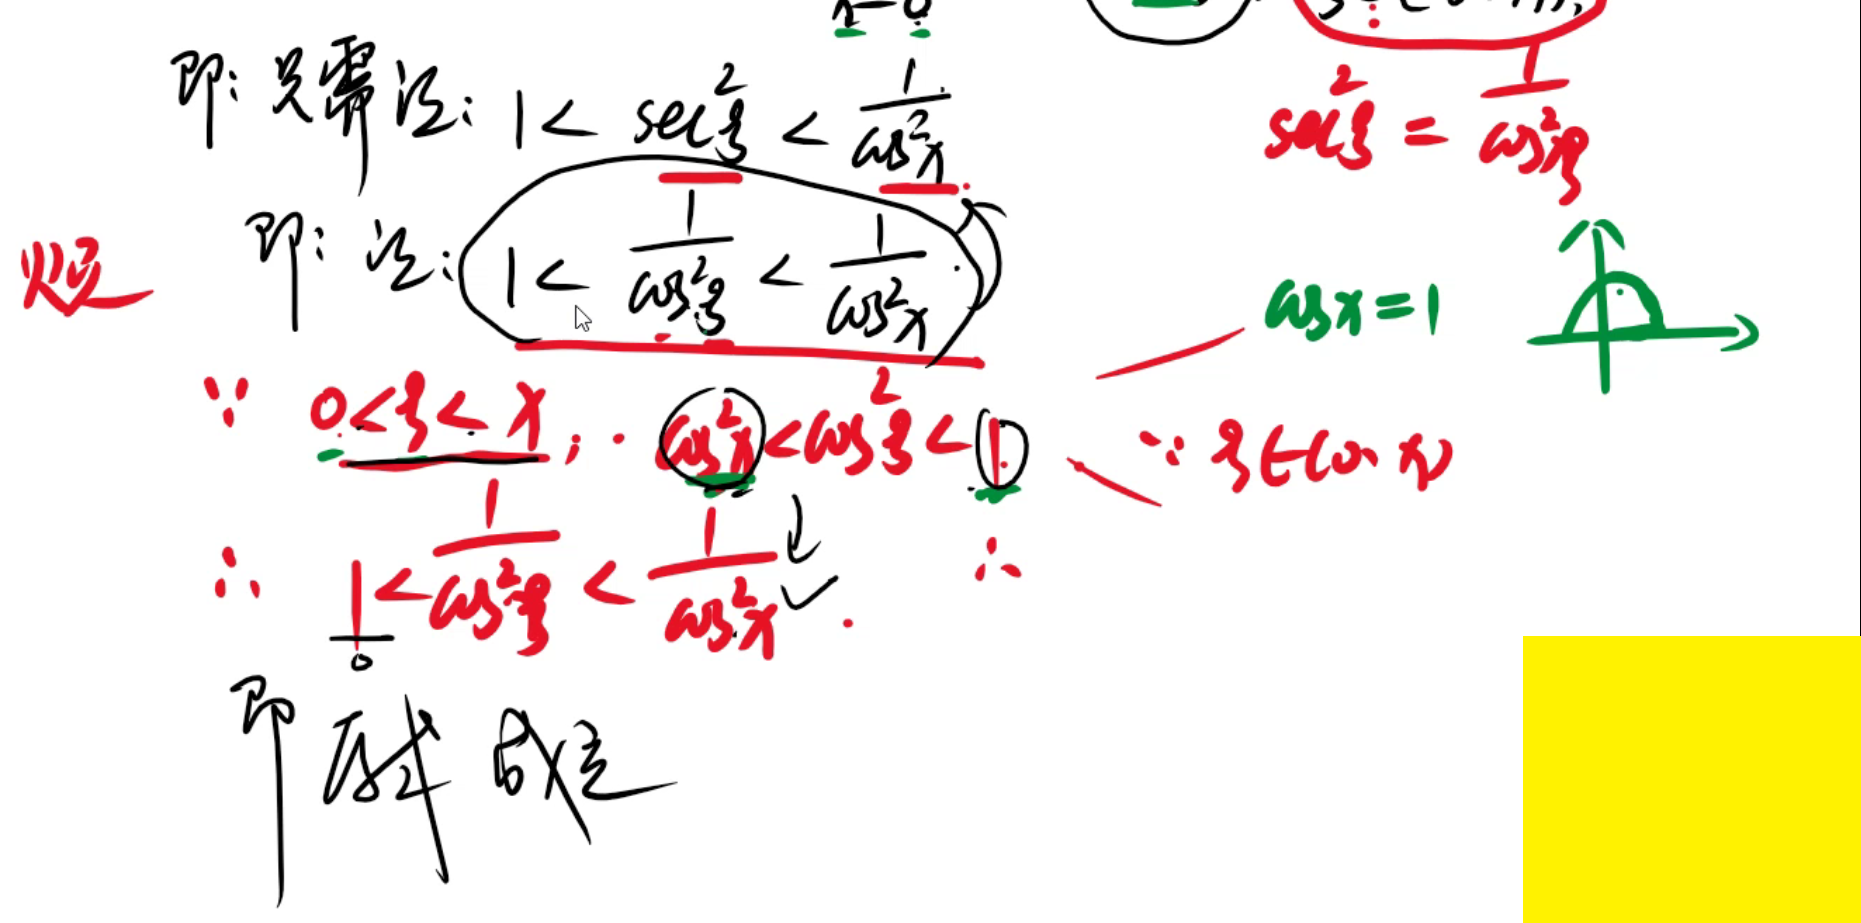 x→0
即: 只需证: 1 < sec²ξ < 1/cos²x
sec²ξ = 1/cos²ξ
即: 证: 1 < 1/cos²ξ < 1/cos²x
cosx = 1
∵ 0<ξ<x, ∴ cos²x < cos²ξ < 1
∵ ξ∈(0, x)
∴ 1 < 1/cos²ξ < 1/cos²x
∴
0
即 原式 成立